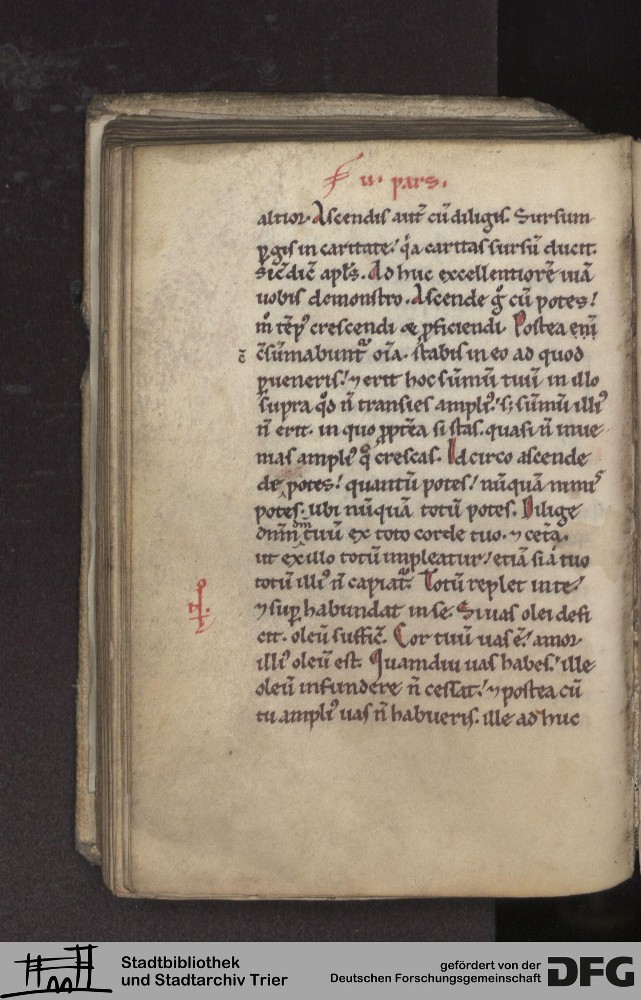 ii. pars.
altior. Ascendis aut̄ cū diligis. Sursum
ꝑgis in caritate. qͥa caritas sursū ducit.
Sic̄ dic̄ apl̄s. Ad huc excellentiorē uiā
uobis demonstro. Ascende gͦ cū potes!
crescendi & ꝓficiendi. Postea eni
c̄sūmabunt᷒ oīa. stabis in eo ad quod
ꝑueneris! ⁊ erit hoc sūmū tuū in illo
supra qd̄ n̄ transies ampliꝰ. sꝫ sūmū illiꝰ
n̄ erit. in quo ꝓpt̄ea si stas. quasi n̄ inue
nias ampliꝰ qͦ crescas. Idcirco ascende
dū potes! quantū potes! nūquā nimiꝰ
potes. ubi nūquā totū potes. Dilige
dn̄m dm̄ tuū ex toto corde tuo. ⁊ cet̄a.
ut ex illo totū impleatur! etiā si a tuo
totū illiꝰ n̄ capiat᷒. Totū replet in te!
⁊ suꝑ habundat in se. Si uas olei defi
cit. oleū suffic̄. Cor tuū uas ē! amor
illiꝰ oleū est. Quamdiu uas habes! ille
oleū infundere n̄ cessat! ⁊ postea cū
tu ampliꝰ uas n̄ habueris. ille ad huc
Stadtbibliothek
und Stadtarchiv Trier
gefördert von der
Deutschen Forschungsgemeinschaft
DFG